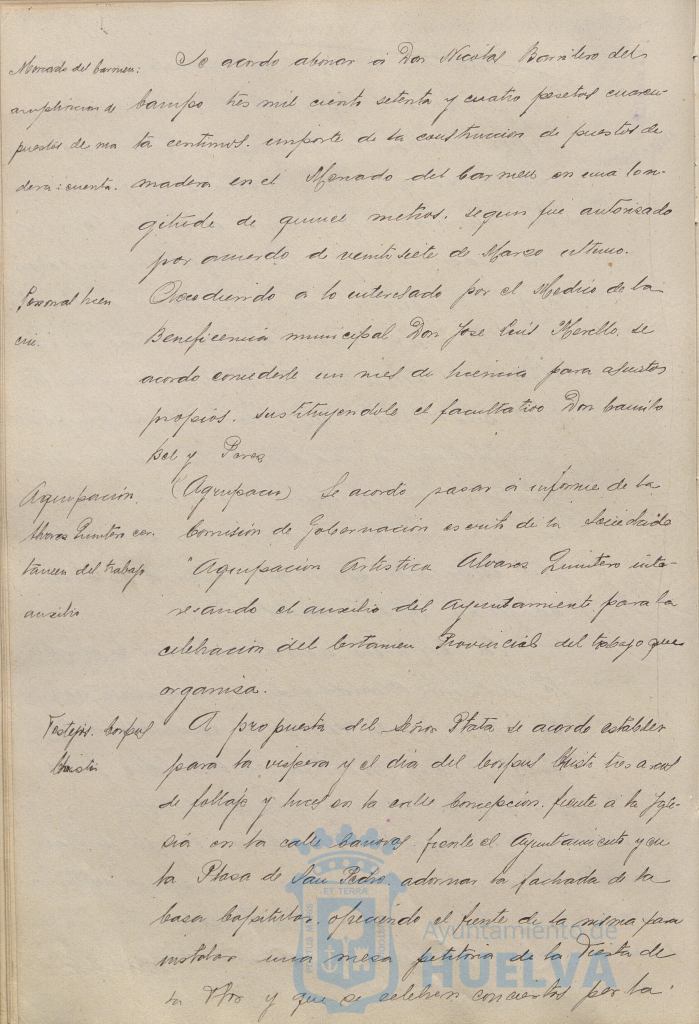 Mercado del Carmen:
ampliacion de
puestos de ma
dera: cuenta.
Se acordo abonar á Don Nicolas Barrilero del
Campo tres mil ciento setenta y cuatro pesetas cuaren-
ta centimos. importe de la construccion de puestos de
madera en el Mercado del Carmen en una lon-
gitude de quince metros. segun fue autorizado
por acuerdo de veintisiete de Marzo ultimo.
Personal licen
cia.
Accediendo a lo interesado por el Medico de la
Beneficencia municipal Don Jose Luis Morello. se
acordo concederle un mes de licencia para asuntos
propios. sustituyendole el facultativo Don Camilo
Bel y
Agrupación
Alvarez Quintero cer-
tamen del trabajo
auxilio
(Agrupacion) Se acordo pasar á informe de la
Comisión de Gobernacion escrito de la Sociedad
"Agrupacion Artistica Alvarez Quintero inte-
resando el auxilio del Ayuntamiento para la
celebracion del Certamen Provincial del trabajo que
organisa.
Festejos. Corpus
Christi
A propuesta del Señor Plata se acordo establecer
para la vispera y el dia del Corpus Christi tres arcos
de follaje y luces en la calle Concepcion. frente á la Igle-
sia en la calle Canovas frente el Ayuntamiento y en
la Plasa de San Pedro. adornar la fachada de la
Casa Capitular. ofreciendo el frente de la misma para
instalar una mesa petitoria de la Fiesta de
la Flor y que se celebren conciertos por la
PORTUS MARIS
ET TERRA
CUSTODIA
Ayuntamiento de
HUELVA